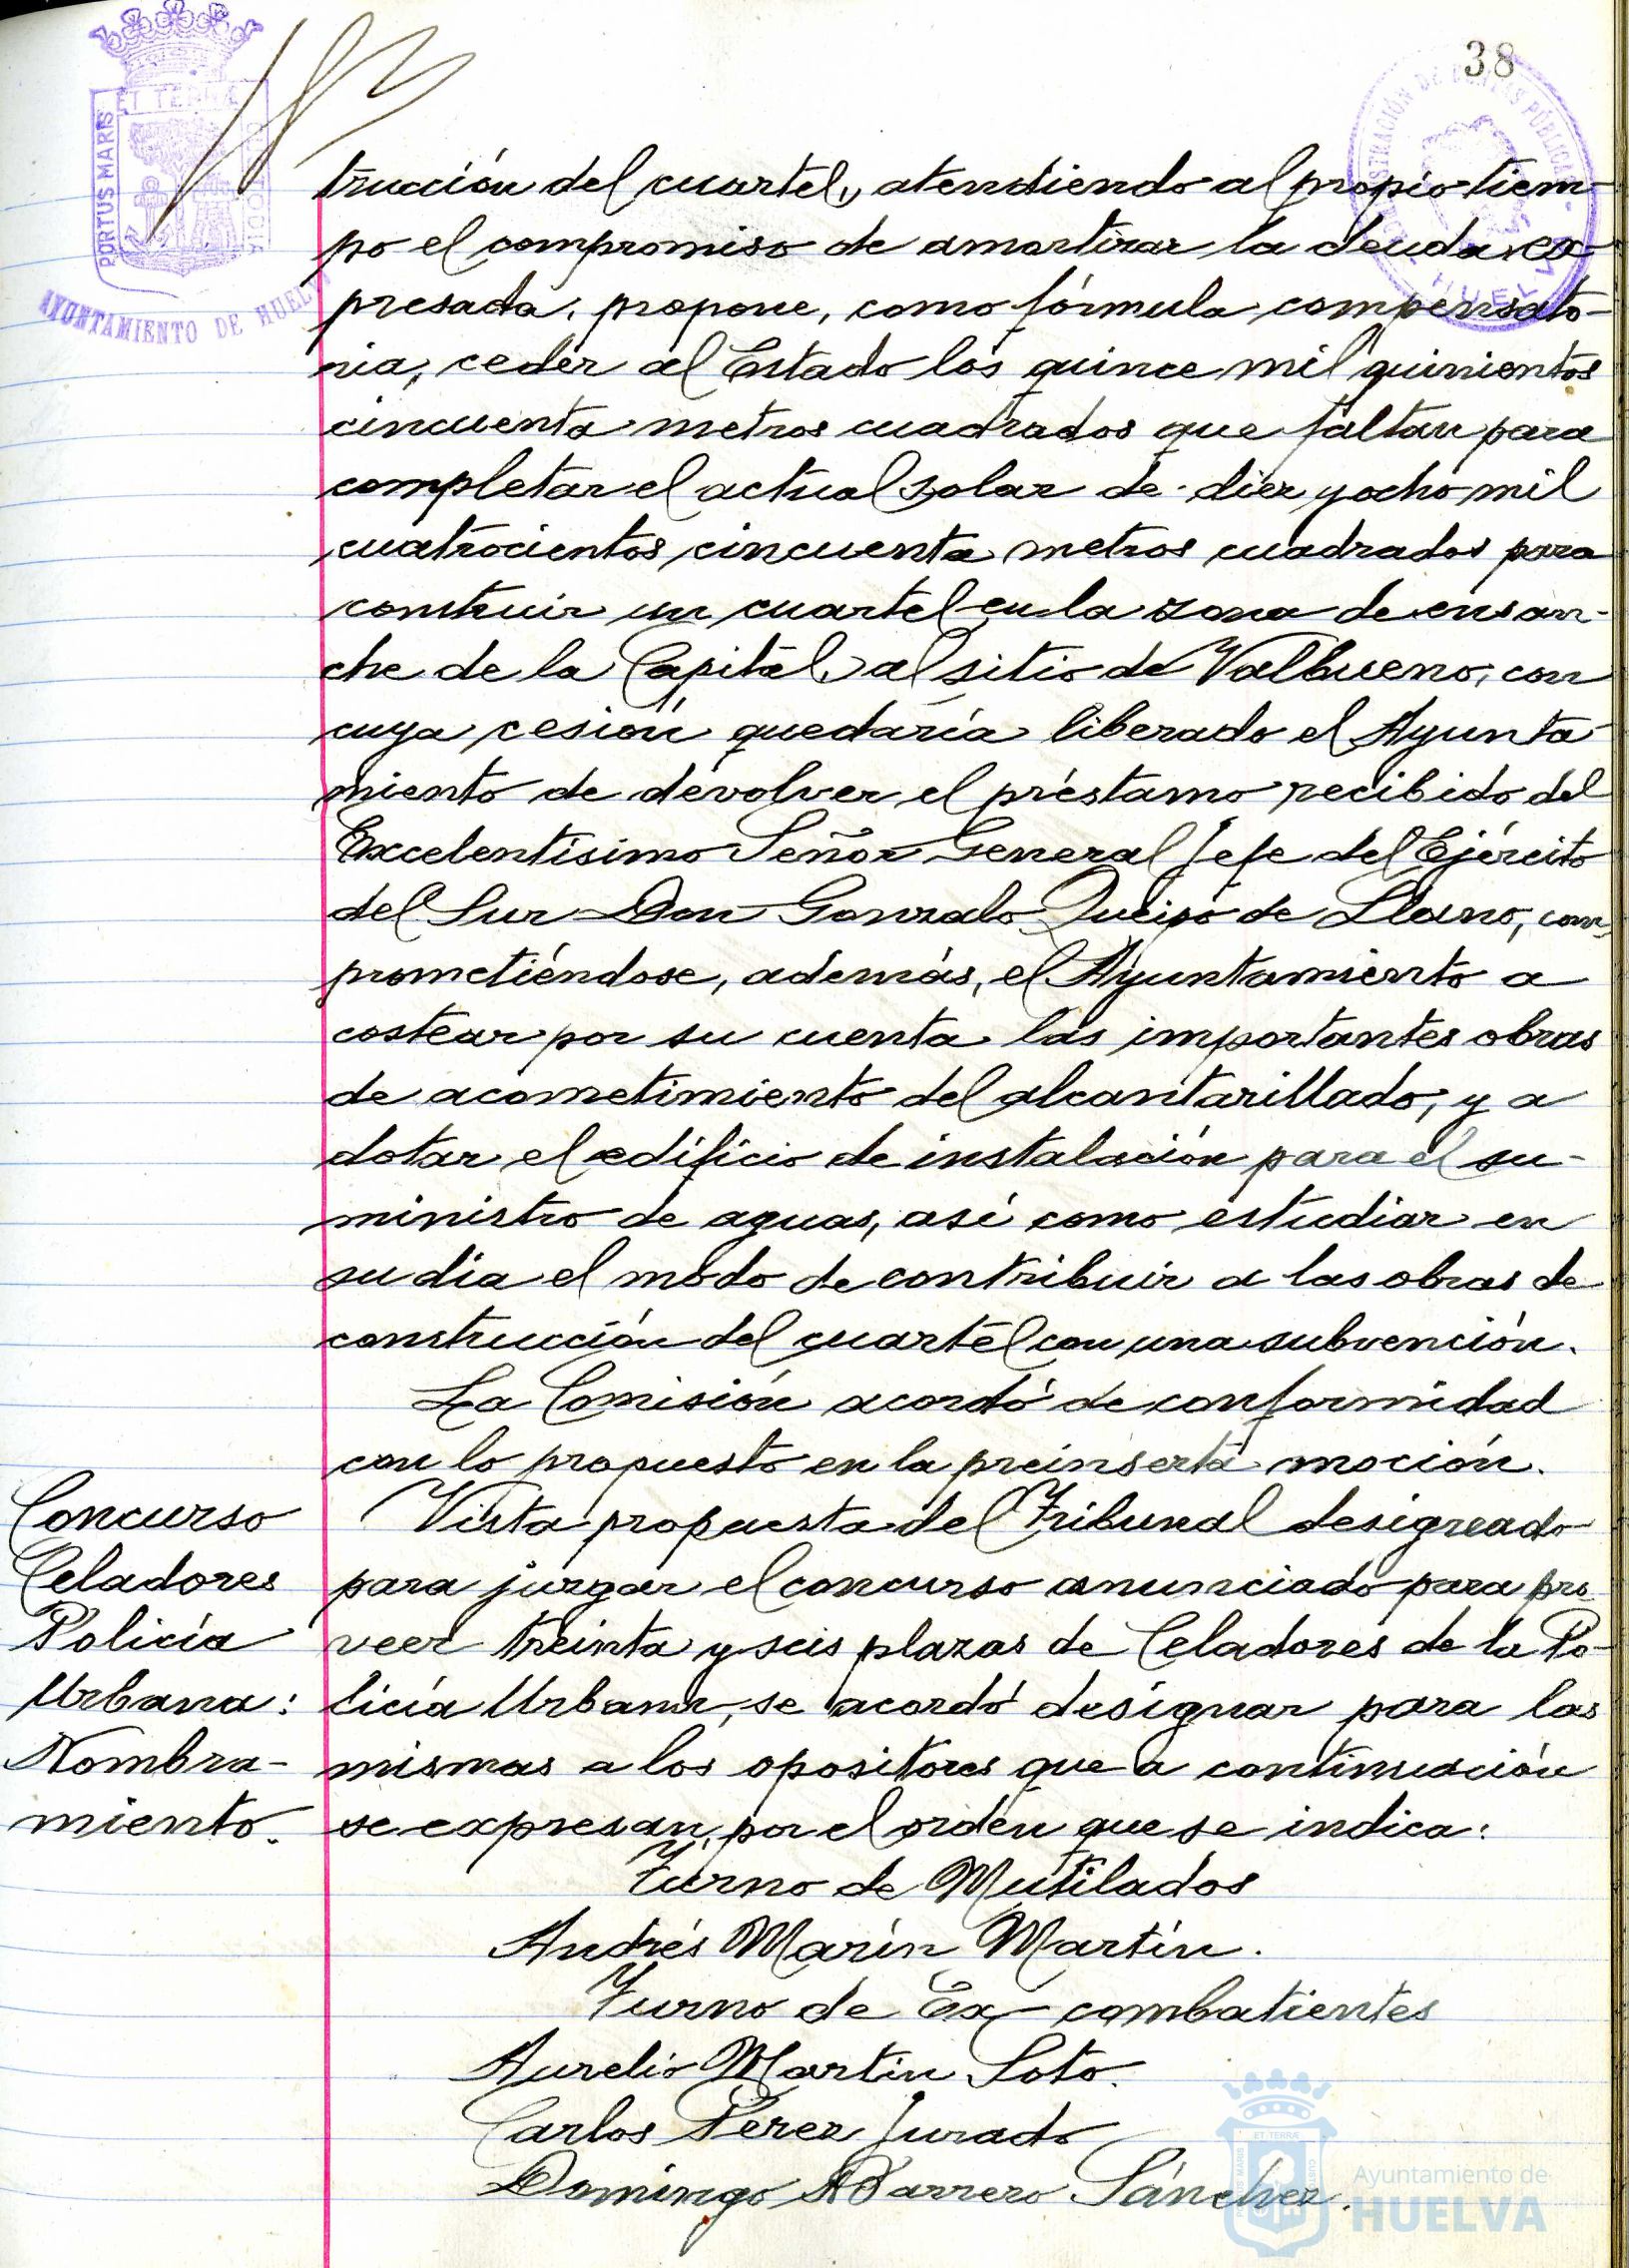 38
PORTUS MARIS
ET TERRAE
CUSTODIA
AYUNTAMIENTO DE HUELVA
HUELVA
trucción del cuartel, atendiendo al propio tiem-
po el compromiso de amortizar la deuda ex-
presada, propone, como fórmula compensato-
ria, ceder al Estado los quince mil quinientos
cincuenta metros cuadrados que faltan para
completar el actual solar de diez y ocho mil
cuatrocientos cincuenta metros cuadrados para
construir un cuartel en la zona de ensan-
che de la Capital, al sitio de Valbueno, con
cuya cesión quedaría liberado el Ayunta-
miento de devolver el préstamo recibido del
Excelentísimo Señor General Jefe del Ejército
del Sur Don Gonzalo Queipo de Llano, com-
prometiéndose, además, el Ayuntamiento a
costear por su cuenta las importantes obras
de acometimiento del alcantarillado, y a
dotar el edificio de instalación para el su-
ministro de aguas, así como estudiar en
su dia el modo de contribuir a las obras de
construcción del cuartel con una subvención.
La Comisión acordó de conformidad
con lo propuesto en la preinserta moción.
Concurso
Celadores
Policía
Urbana:
Nombra-
miento.
Vista propuesta del Tribunal designado
para juzgar el concurso anunciado para pro-
veer treinta y seis plazas de Celadores de la Po-
licía Urbana, se acordó designar para las
mismas a los opositores que a continuación
se expresan, por el orden que se indica:
Turno de Mutilados
Andrés Marín Martín.
Turno de Ex-combatientes
Aurelio Martin Soto.
Carlos Pérez Jurado
Domingo Barrero Sánchez.
Ayuntamiento de
HUELVA